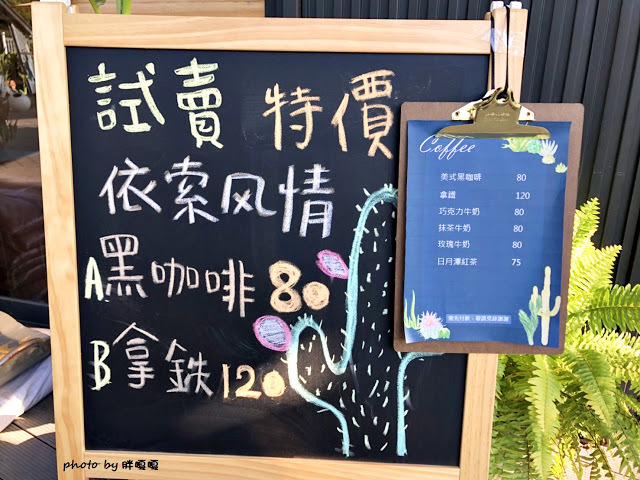 試賣 特價
依索风情
A黑咖啡 80
B拿鉄 120
Coffee
美式黑咖啡 80
拿鐵 120
巧克力牛奶 80
抹茶牛奶 80
玫瑰牛奶 80
日月潭紅茶 75
photo by 胖嘎嘎